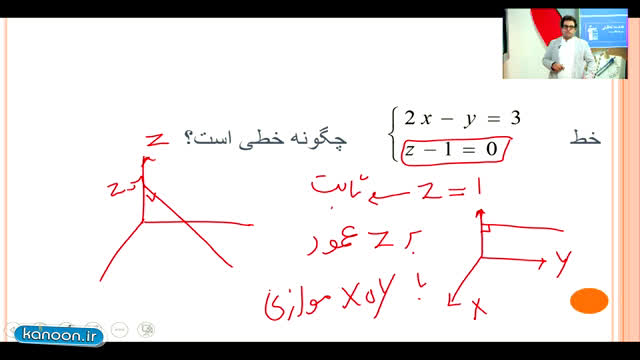 خط { 2x − y = 3 , z − 1 = 0 چگونه خطی است؟
z = 1 ثابت
بر z عمود
با xoy موازی
Z
Z
Y
X
kanoon.ir